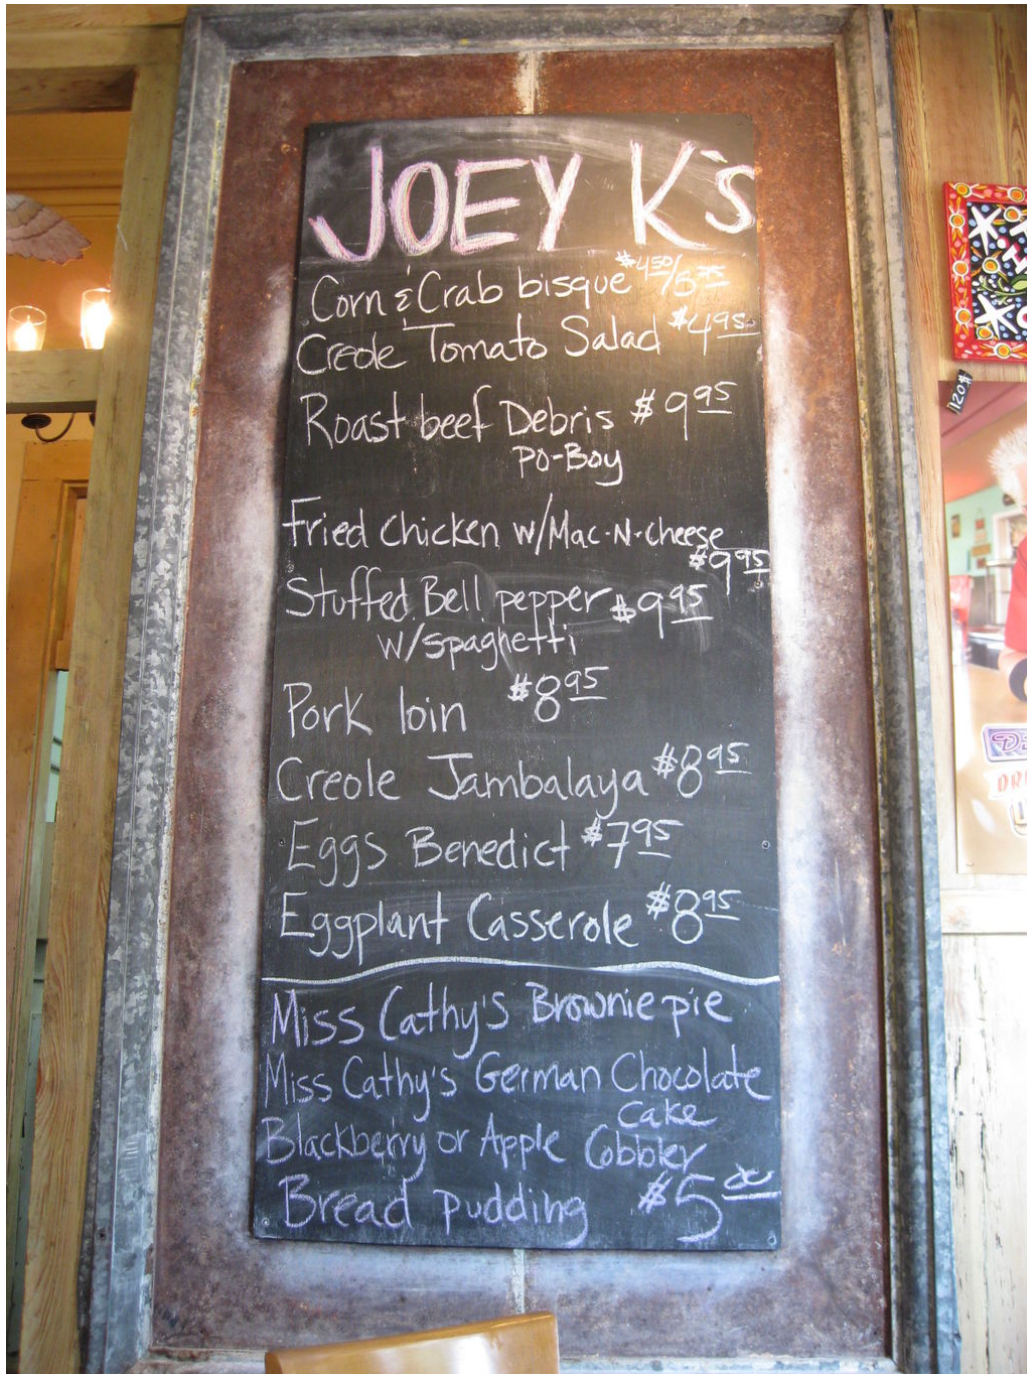 JOEY K's
Corn & Crab bisque $4.50/5.75
Creole Tomato Salad $4.95
Roast beef Debris $9.95
Po-Boy
Fried Chicken w/Mac-N-cheese
$9.95
Stuffed Bell pepper $9.95
w/spaghetti
Pork loin $8.95
Creole Jambalaya $8.95
Eggs Benedict $7.95
Eggplant Casserole $8.95
Miss Cathy's Brownie pie
Miss Cathy's German Chocolate
Cake
Blackberry or Apple Cobbler
Bread pudding $5.00
120$